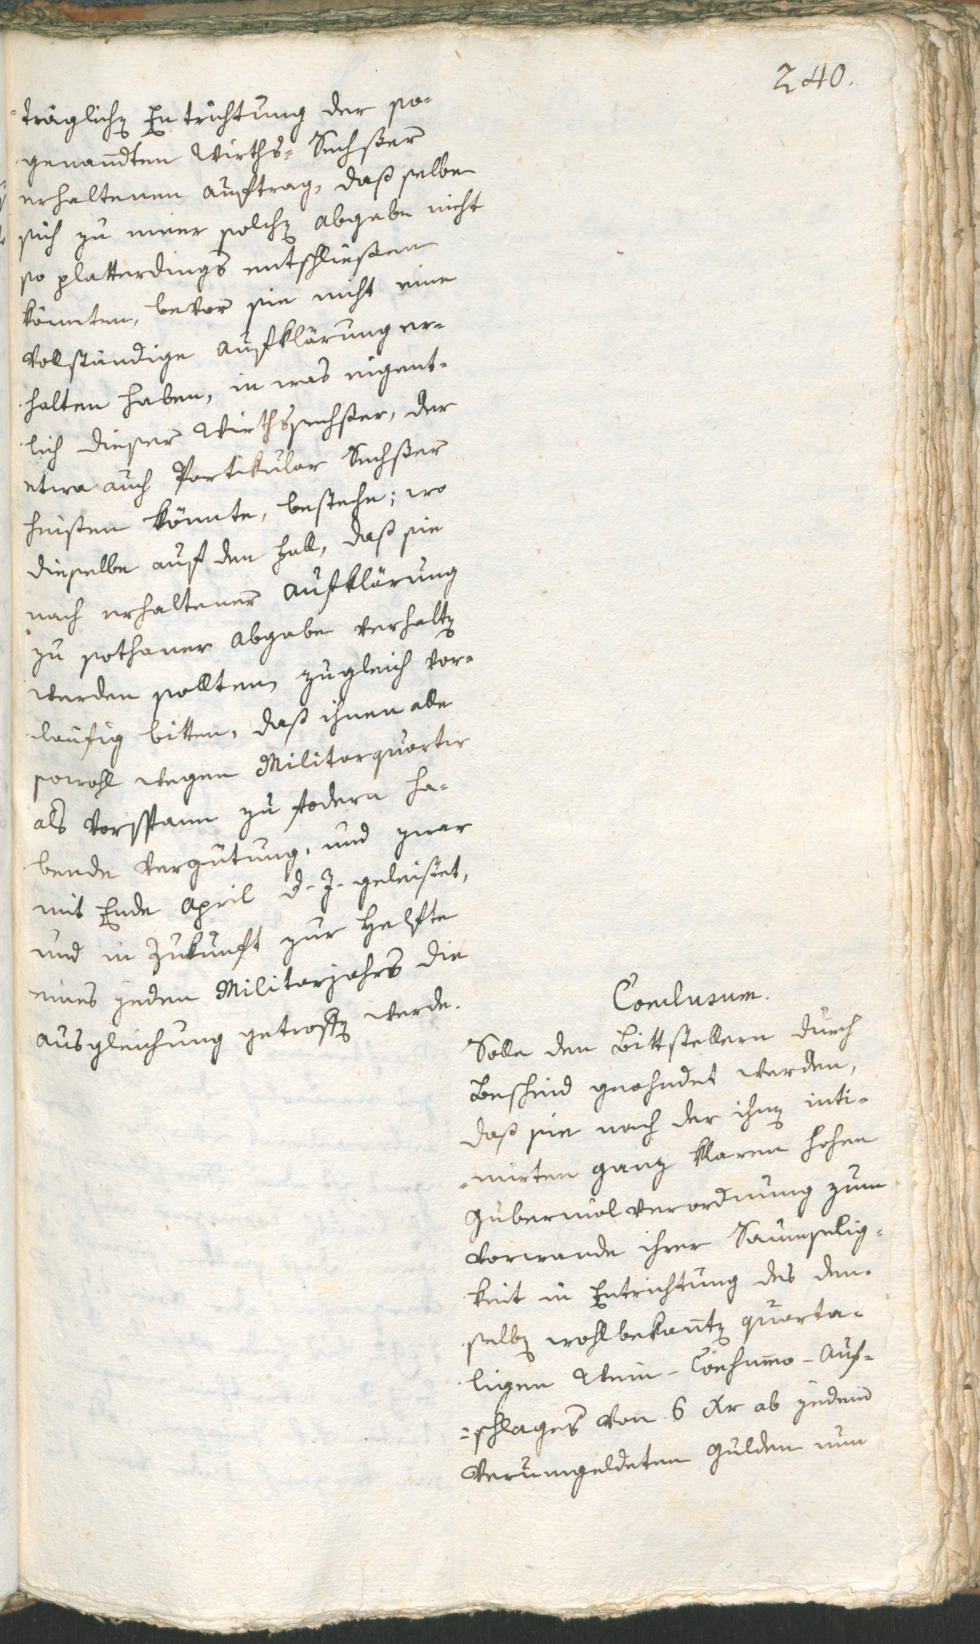 240.
-träglichen Entrichtung der so-
genanndten Wirths-Sechsßer
erhaltenen Auftrag, daß selbe
sich zu einer solchen Abgabe nicht
so platterdings entschließen
könnten, bevor sie nicht eine
vollständige Aufklärung er-
halten haben, in was eigent-
lich dieser Wirthssechsßer, der
etwa auch Partikular Sechsßer
heißen könnte, bestehe; wo
dieselbe auf den Fall, daß sie
nach erhaltener Aufklärung
zu sothaner Abgabe verhalten
werden sollten, zugleich vor-
läufig bitten, daß ihnen alle
sowohl wegen Militarquartir
als Vorspann zu fodern ha-
bende Vergütung, und zwar
mit Ende April d. J. geleistet,
und in Zukunft zur Helfte
eines jeden Militarjahrs die
Ausgleichung getroffen werde.
Conclusum.
Solle den Bittstellern durch
Bescheid geahndet werden,
daß sie nach der ihnen inti-
-mirten ganz klaren hohen
Gubernialverordnung zum
Vorwande ihrer Saumselig-
keit in Entrichtung des den-
selben wohlbekannten quarta-
ligen Wein-Consummo-Auf-
-schlages von 6 Xr ab jedem
Verumgeldeten Gulden nun